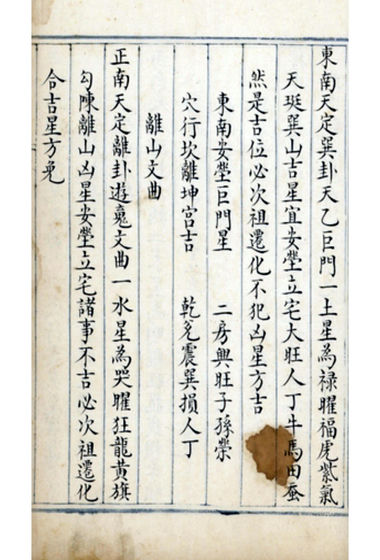 東南天定巽卦天乙巨門一土星為禄曜福虎紫氣
天班巽山吉星宜安塋立宅大旺人丁牛馬田蚕
然是吉位必次祖遷化不犯凶星方吉
東南安塋巨門星 二房興旺子孫榮
穴行坎離坤宮吉 乾兌震巽損人丁
離山文曲
正南天定離卦遊䰟文曲一水星為哭曜狂龍黃旗
勾陳離山凶星安塋立宅諸事不吉必次祖遷化
合吉星方免